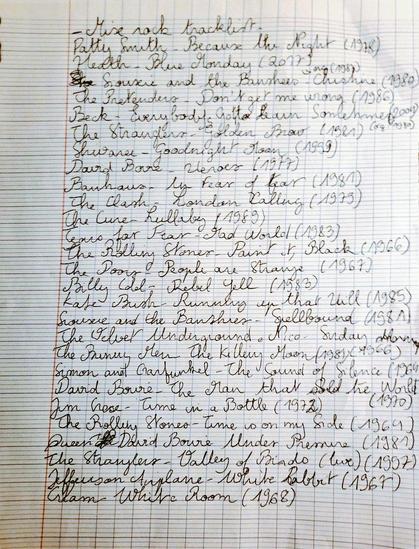 - Mix rock tracklist.
Patty Smith - Because the Night (1978)
Health - Blue Monday (2017)
Siouxie and the Banshees - Christine (1980)
The Pretenders - Don't get me wrong (1986)
Beck - Everybody's Gotta Learn Sometime
The Stranglers - Golden Brow (1981)
Shivaree - Goodnight Moon (1999)
David Bowie - Heroes (1977)
Bauhaus - In Fear of Fear (1981)
The Clash - London Calling (1979)
The Cure - Lullaby (1989)
Tears for Fear - Mad World (1983)
The Rolling Stones - Paint it, Black (1966)
The Doors - People are Strange (1967)
Billy Idol - Rebel Yell (1983)
Kate Bush - Running up that Hill (1985)
Siouxie and the Banshies - Spellbound (1981)
The Velvet Underground, Nico - Sunday Morning
The Bunny Men The Killing Moon (1966)
Simon and Garfunkel - The Sound of Silence
David Bowie - The Man that sold the World
(1970)
Jim Croce - Time in a Bottle (1972)
The Rolling Stones - Time is on my Side (1964)
Queen David Bowie Under Pressure (1981)
The Strangler - Valley of Birds (live) (1997)
Jefferson Airplane - White Rabbit (1967)
Cream - White Room (1968)